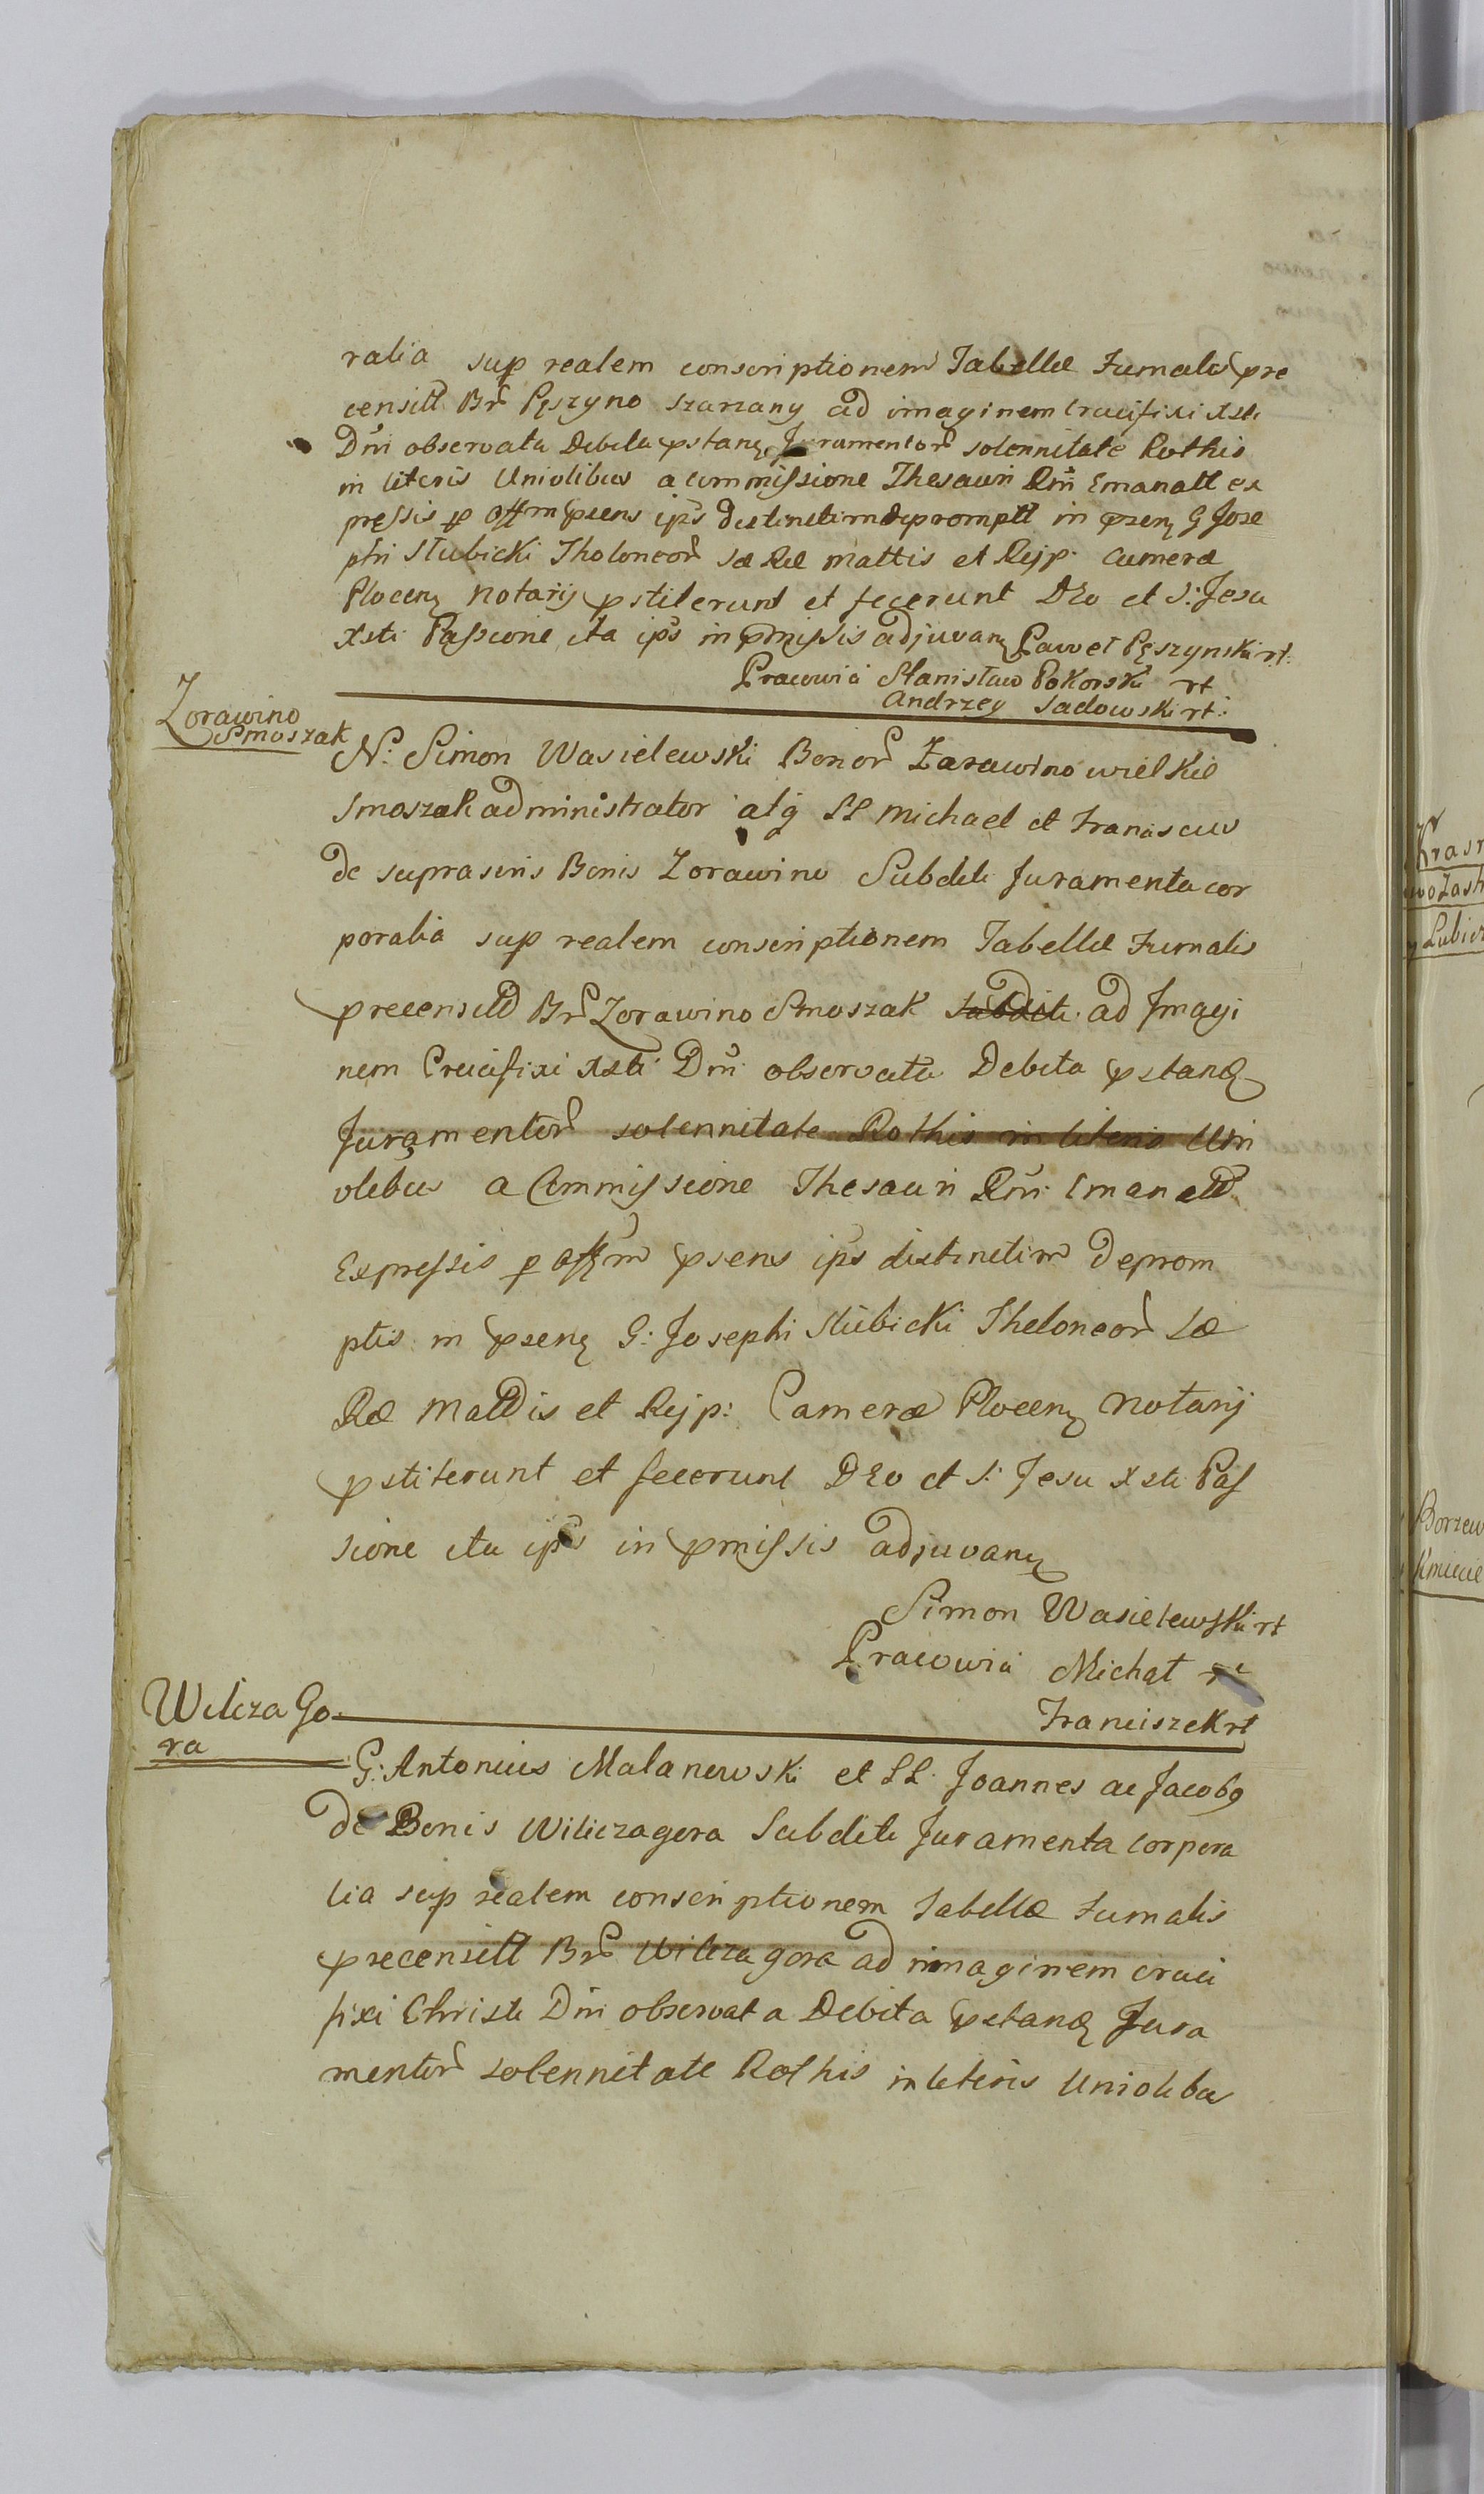 ralia sup realem conscriptionem Tabellæ Fumalis pre
censitt Br Pęszyno szarzany ad imaginem Crucifixi Xsti
Dni observata Debita pstanz Juramentor solennitate Rothis
in literis Uniolibus a Commissione Thesauri Rni Emanatt ex
pręssis p Offm psens ips distinctim depromptt in psenz G Jose
phi Słubicki Tholoneor Sæ Ræ Mattis et Rejp. Cameræ
Plocenz Notarij pstiterunt et fecerunt DEo et S: Jesu
Xsti Passione ita ips in pmissis adjuvanz Paweł Pęszynski rt.
Pracowia Stanisław Pokorski rt
Andrzey Sadowski rt:
Zorawino
Smoszak
N: Simon Wasielewski Bonor Zarawino wielkie
Smoszak administrator atq LL Michael et Franciscus
de suprascris Bonis Zorawino Subditi Juramenta cor
poralia sup realem conscriptionem Tabellæ Fumalis
precensitt Br Zorawino Smoszak Subditi ad Jmagi
nem Crucifixi Xsti Dni observata Debita pstanz
Juramentor solennitate Rothis in literis Uni
olibus a Commissione Thesauri Rni Emanatt
Expressis p Offm psens ips distinctim Deprom
ptis in psenz G: Josephi Słubicki Theloneor Sæ
Ræ Mattis et Rejp: Cameræ Plocenz Notarij
pstiterunt et fecerunt DEo et S: Jesu Xsti Pas
sione ita ips in pmissis adjuvanz
Simon Wasielewski rt
Pracowia Michał rt
Franciszek rt
Wilcza Go
ra
G: Antonius Malanowski et LL. Joannes ac Jacob9
de Bonis Wilczagora Subditi Juramenta corpora
lia sup realem conscriptionem Tabellæ Fumalis
precensitt Br Wilcza gora ad imaginem cruci
fixi Christi Dni observata Debita pstanz Jura
mentor solennitate Rothis in literis Uniolibus
Borzew